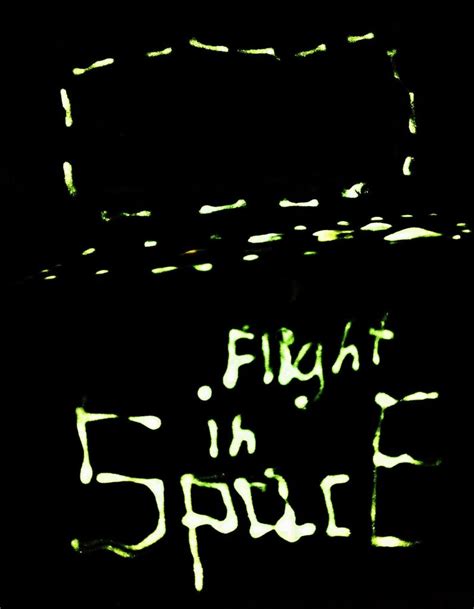 Flight
in
SpacE